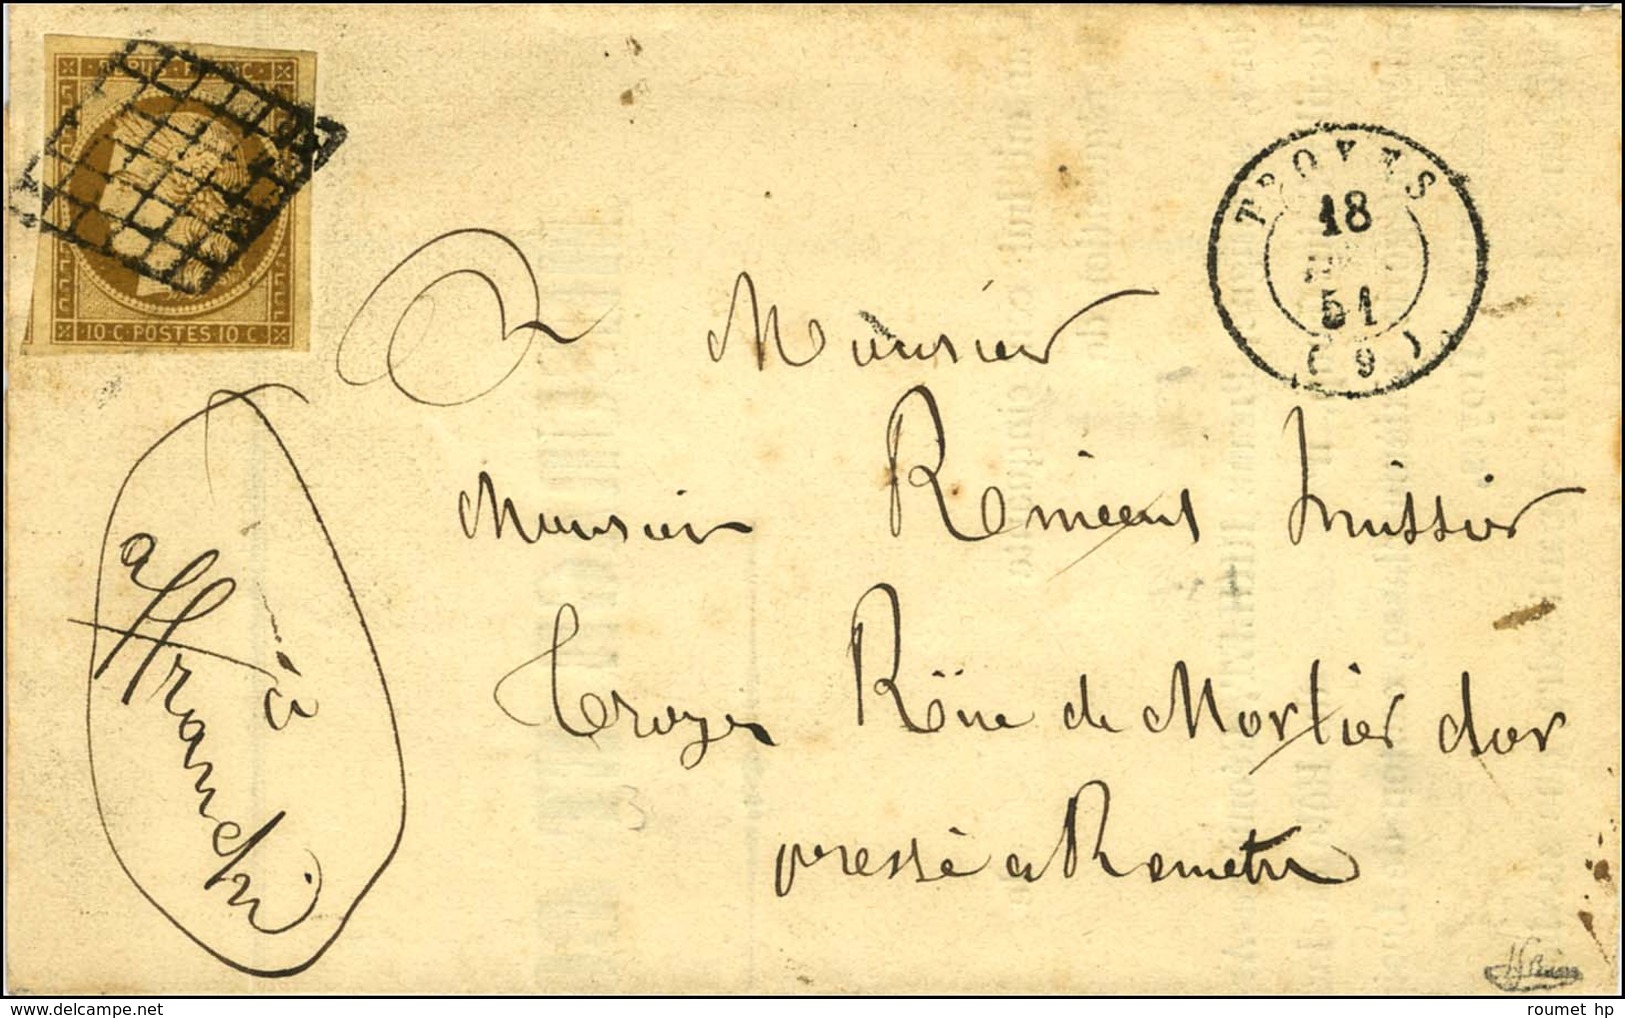 REPUB. FRANC.
10 C. POSTES. 10 C.
TROYES
18
51
(9)
Monsieur
Monsieur huissier
Troyes Rüe de Mortier dor
pressé a Remetre
affranchi
roumet hp